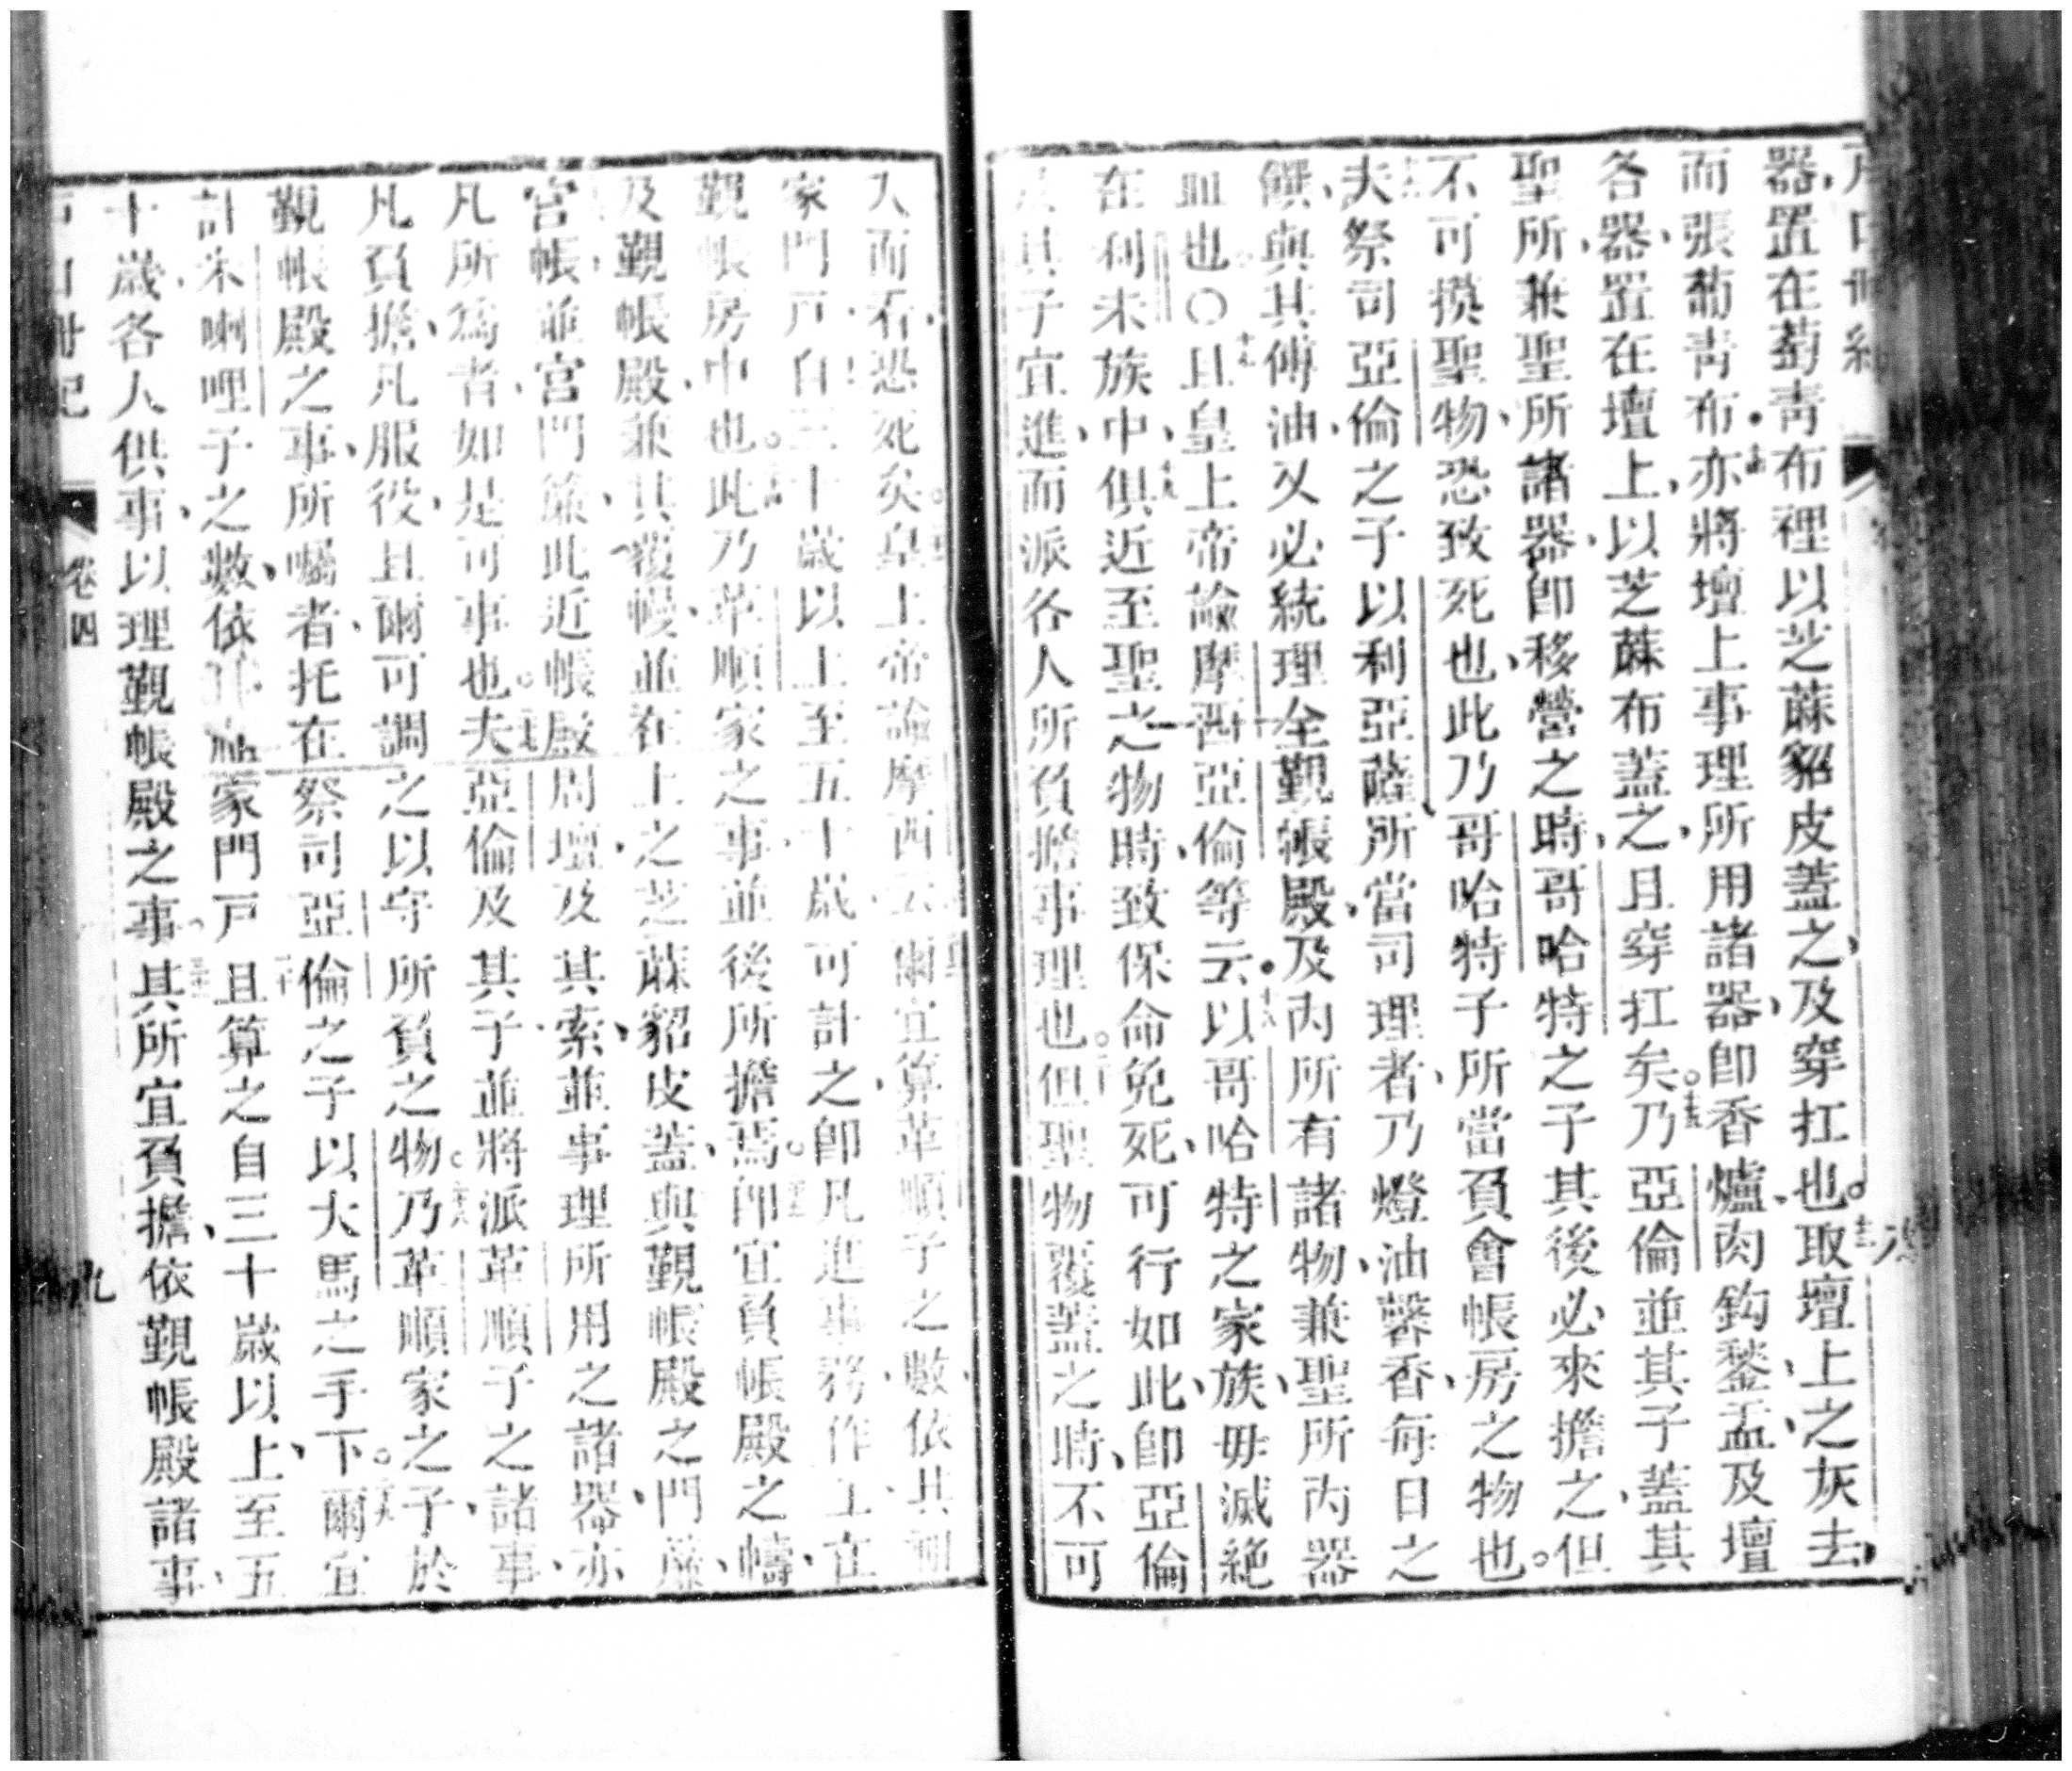 器置在萄青布裡以芝蔴貂皮蓋之及穿扛也。十三取壇上之灰去
而張葡青布。十四亦將壇上事理所用諸器卽香爐肉鈎鍫盂及壇
各器置在壇上以芝蔴布蓋之且穿扛矣。十五乃亞倫並其子蓋其
聖所兼聖所諸器卽移營之時哥哈特之子其後必來擔之但
不可摸聖物恐致死也此乃哥哈特子所當負會帳房之物也。
十六夫祭司亞倫之子以利亞薩所當司理者乃燈油馨香每日之
饌與其傅油又必統理全覲帳殿及內所有諸物兼聖所內器
皿也○十七且皇上帝諭摩西亞倫等云十八以哥哈特之家族毋滅絕
在利未族中十九俱近至聖之物時致保命免死可行如此卽亞倫
及其子宜進而派各人所負擔事理也。二十但聖物覆蓋之時不可
入而看恐死矣。皇上帝諭摩西云爾宜算革順子之數依其
家門戸自三十歲以上至五十歲可計之卽凡進事務作工在
覲帳房中也。此乃革順家之事並後所擔焉。卽宜負帳殿之幬
及覲帳殿兼其覆幔並在上之芝蔴貂皮蓋與覲帳殿之門簾
宮帳並宮門簾此近帳殿周壇及其索並事理所用之諸器亦
凡所爲者如是可事也。夫亞倫及其子並將派革順子之諸事
凡負擔凡服役且爾可調之以守所負之物。乃革順家之子於
覲帳殿之事所囑者托在祭司亞倫之子以大馬之手下。爾宜
計米喇哩子之數依家門戸且算之自三十歲以上至五
十歲各人供事以理覲帳殿之事其所宜負擔依覲帳殿諸事
卷四
九